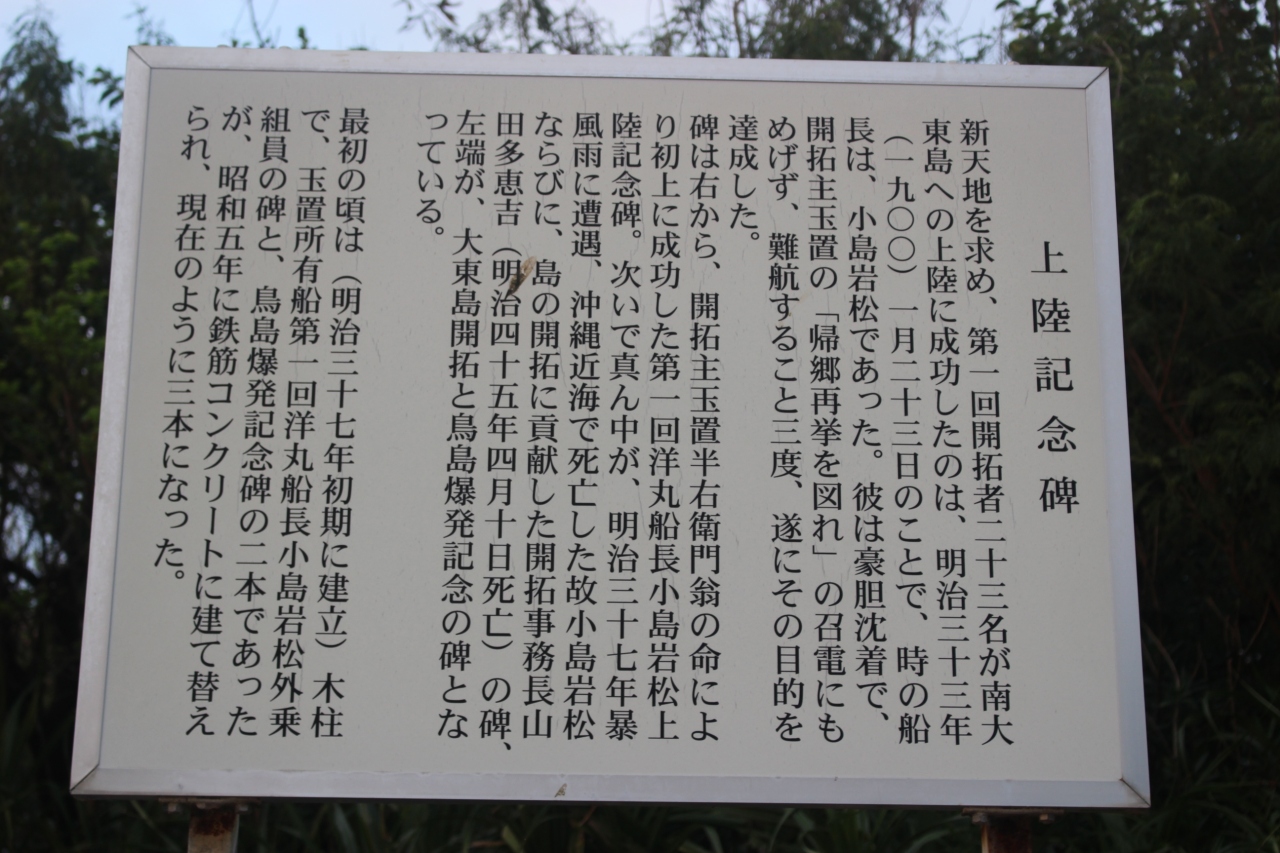 上陸記念碑
新天地を求め、第一回開拓者二十三名が南大
東島への上陸に成功したのは、明治三十三年
（一九〇〇）一月二十三日のことで、時の船
長は、小島岩松であった。彼は豪胆沈着で、
開拓主玉置の「帰郷再挙を図れ」の召電にも
めげず、難航すること三度、遂にその目的を
達成した。
碑は右から、開拓主玉置半右衛門翁の命によ
り初上に成功した第一回洋丸船長小島岩松上
陸記念碑。次いで真ん中が、明治三十七年暴
風雨に遭遇、沖縄近海で死亡した故小島岩松
ならびに、島の開拓に貢献した開拓事務長山
田多恵吉（明治四十五年四月十日死亡）の碑、
左端が、大東島開拓と鳥島爆発記念の碑とな
っている。
最初の頃は（明治三十七年初期に建立）木柱
で、玉置所有船第一回洋丸船長小島岩松外乗
組員の碑と、鳥島爆発記念碑の二本であった
が、昭和五年に鉄筋コンクリートに建て替え
られ、現在のように三本になった。